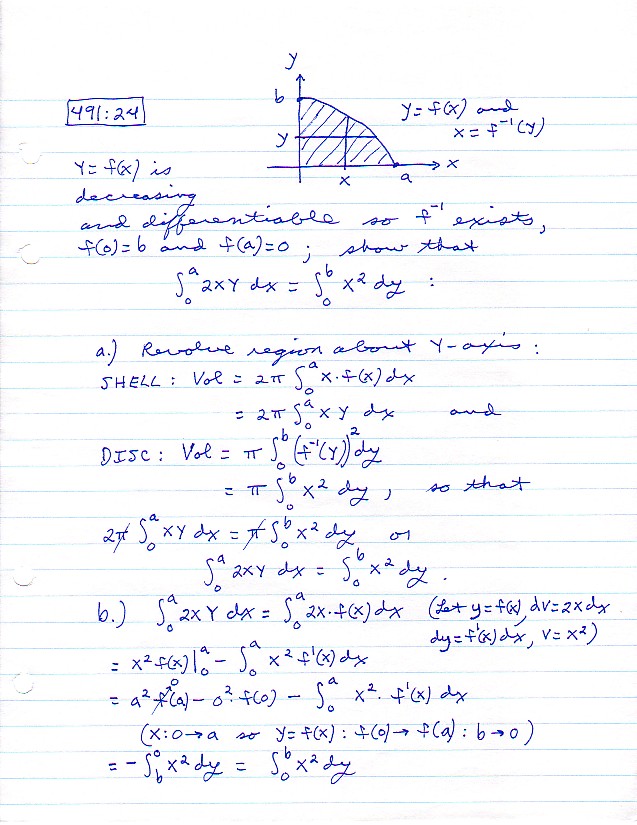 y
b
491:24
y = f(x) and
y
x = f⁻¹(y)
x
Y = f(x) is
x
a
decreasing
and differentiable so f⁻¹ exists,
f(0)=b and f(a)=0 ; show that
∫₀ᵃ 2xY dx = ∫₀ᵇ x² dy :
a.) Revolve region about Y-axis :
SHELL : Vol = 2π ∫₀ᵃ x·f(x) dx
= 2π ∫₀ᵃ x y dx and
DISC : Vol = π ∫₀ᵇ (f⁻¹(y))² dy
= π ∫₀ᵇ x² dy , so that
2π ∫₀ᵃ xy dx = π ∫₀ᵇ x² dy or
∫₀ᵃ 2xy dx = ∫₀ᵇ x² dy .
b.) ∫₀ᵃ 2xY dx = ∫₀ᵃ 2x·f(x) dx (Let y=f(x), dv=2x dx
dy=f'(x)dx, v=x²)
= x² f(x)|₀ᵃ - ∫₀ᵃ x² f'(x) dx
= a² f(a)→0 - 0²·f(0) - ∫₀ᵃ x²·f'(x) dx
(x:0→a so y=f(x) : f(0)→f(a) : b→0)
= -∫_b⁰ x² dy = ∫₀ᵇ x² dy